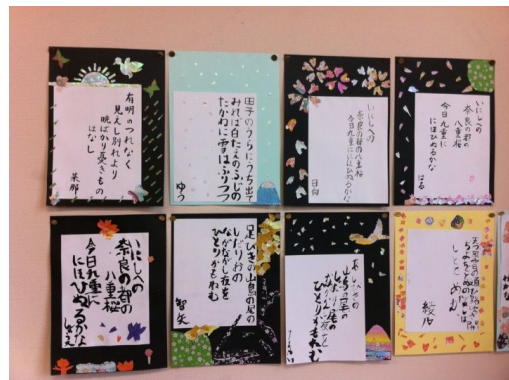 有明のつれなく
見えし別れより
暁ばかり憂きもの
はなし
田子のうらにうち出て
みれば白たえのふじの
たかねに雪はふりつつ
ゆう
いにしへの
奈良の都の八重桜
今日九重ににほひぬるかな
日向
いにしへの
奈良の都の
八重桜
今日九重に
にほひぬるかな
はる
いにしへの
奈良の都の
八重桜
今日九重に
にほひぬるかな
足びきの山鳥の尾の
しだりおの
ながながし夜を
ひとりかもねむ
智矢
あしびきの
山鳥の尾の
ながながし夜を
ひとりかもねむ